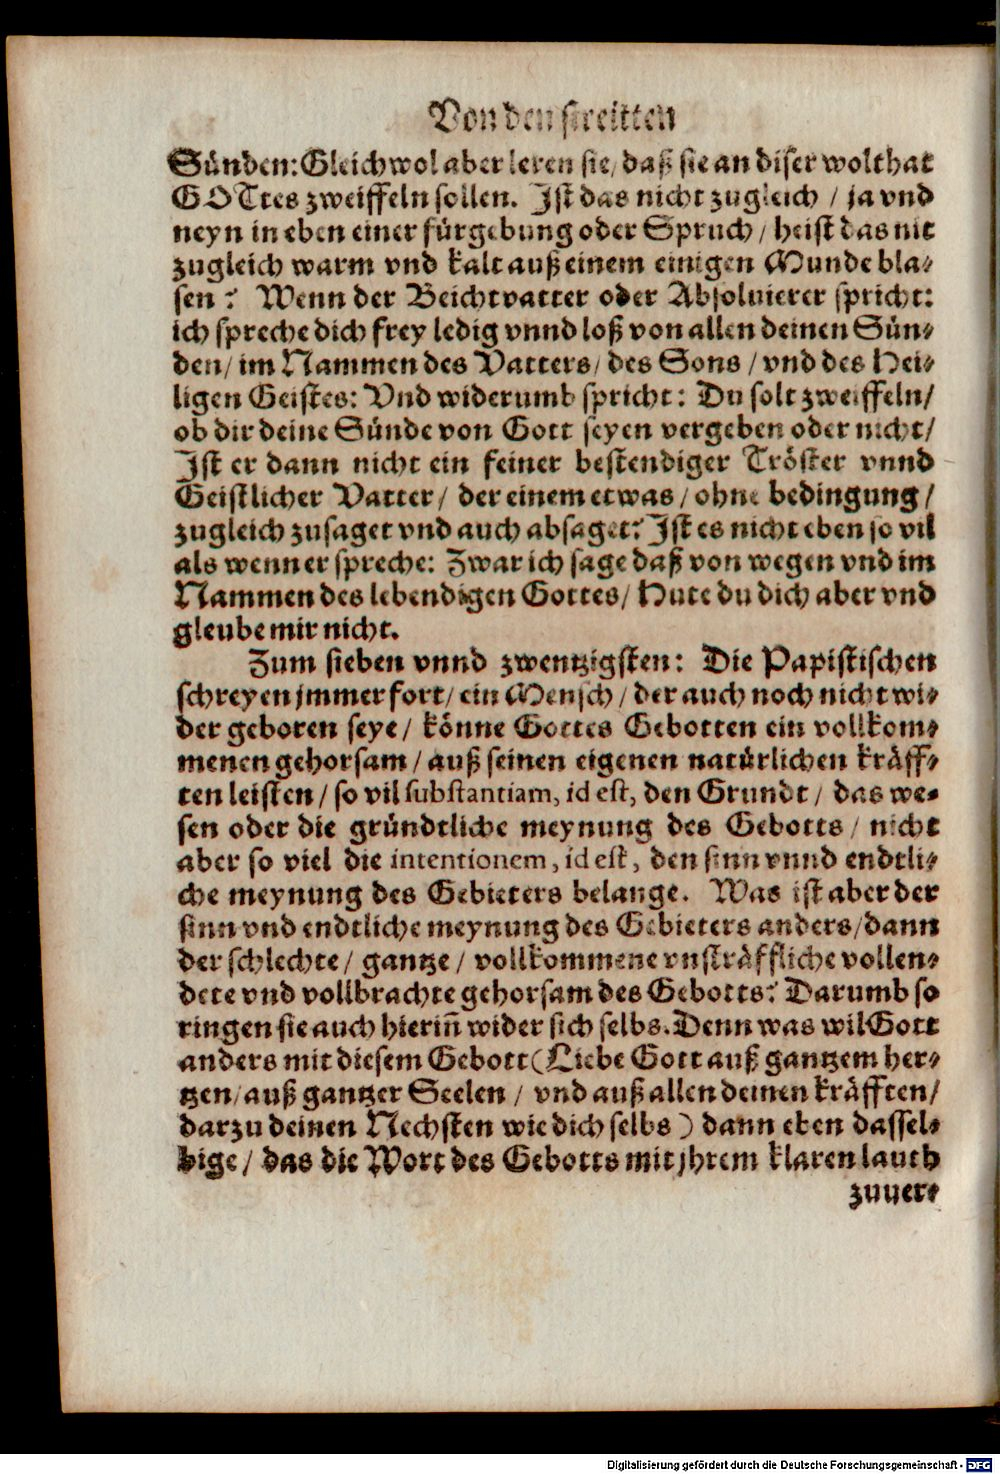 Von den streitten
Sünden: Gleichwol aber leren sie/ daß sie an diser wolthat
GOTtes zweiffeln sollen. Ist das nicht zugleich / ja vnd
neyn in eben einer fürgebung oder Spruch / heist das nit
zugleich warm vnd kalt auß einem einigen Munde bla-
sen? Wenn der Beichtvatter oder Absoluierer spricht:
ich spreche dich frey ledig vnnd loß von allen deinen Sün-
den/ im Nammen des Vatters/ des Sons / vnd des Hei-
ligen Geistes: Vnd widerumb spricht: Du solt zweiffeln/
ob dir deine Sünde von Gott seyen vergeben oder nicht/
Ist er dann nicht ein feiner bestendiger Tröster vnnd
Geistlicher Vatter/ der einem etwas/ ohne bedingung/
zugleich zusaget vnd auch absaget? Ist es nicht eben so vil
als wenn er spreche: Zwar ich sage daß von wegen vnd im
Nammen des lebendigen Gottes/ Hute du dich aber vnd
gleube mir nicht.
Zum sieben vnnd zwentzigsten: Die Papistischen
schreyen jmmer fort/ ein Mensch / der auch noch nicht wi-
der geboren seye/ könne Gottes Gebotten ein vollkom-
menen gehorsam/ auß seinen eigenen natürlichen kräff-
ten leisten/ so vil substantiam, id est, den Grundt/ das we-
sen oder die gründtliche meynung des Gebotts/ nicht
aber so viel die intentionem, id est, den sinn vnnd endtli-
che meynung des Gebieters belange. Was ist aber der
sinn vnd endtliche meynung des Gebieters anders/ dann
der schlechte/ gantze/ vollkommene vnsträffliche vollen-
dete vnd vollbrachte gehorsam des Gebotts? Darumb so
ringen sie auch hierin̄ wider sich selbs. Denn was wil Gott
anders mit diesem Gebott (Liebe Gott auß gantzem her-
tzen/ auß gantzer Seelen / vnd auß allen deinen kräfften/
darzu deinen Nechsten wie dich selbs) dann eben dassel-
bige/ das die Wort des Gebotts mit jhrem klaren lauth
zuuer-
Digitalisierung gefördert durch die Deutsche Forschungsgemeinschaft - DFG